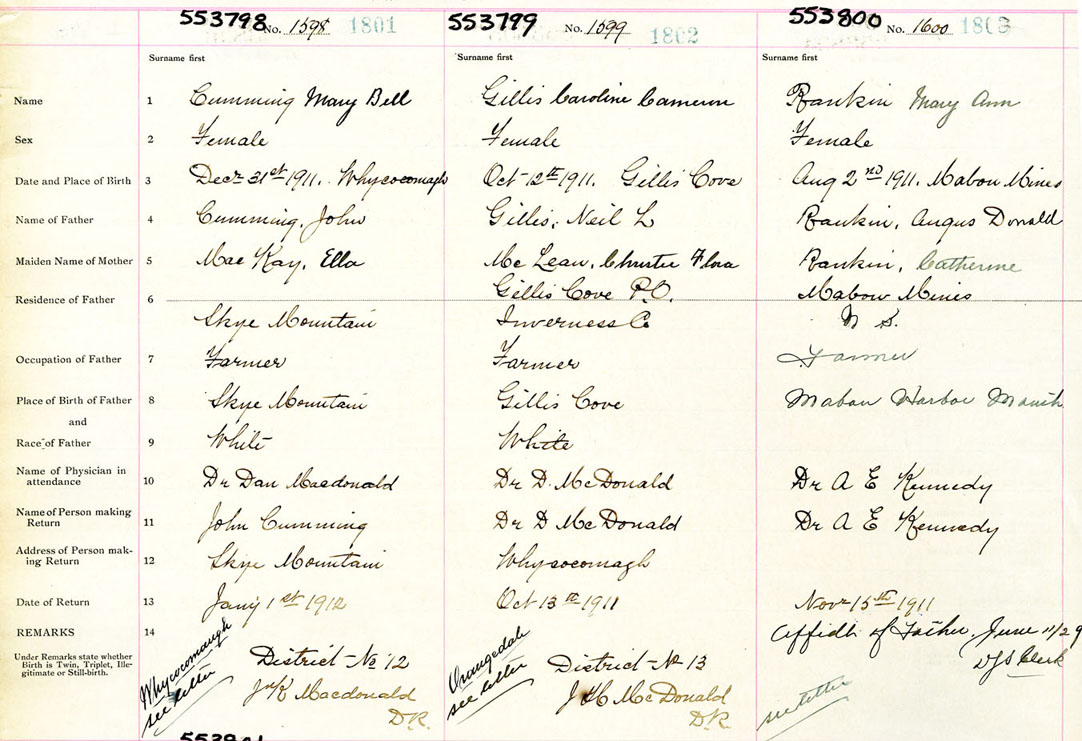 553798 No. 1598 1801 553799 No. 1599 1802 553800 No. 1600 1803
Surname first Surname first Surname first
Name 1 Cumming Mary Bell Gillis Caroline Cameron Rankin Mary Ann
Sex 2 Female Female Female
Date and Place of Birth 3 Decr 31st 1911. Whycocomagh Oct 12th 1911. Gillis Cove Aug 2nd 1911. Mabou Mines
Name of Father 4 Cumming, John Gillis, Neil L Rankin, Angus Donald
Maiden Name of Mother 5 Mac Kay, Ella Mc Lean, Christie Flora Rankin, Catherine
Residence of Father 6 Gillis Cove P.O. Mabou Mines
Skye Mountain Inverness Co N S.
Occupation of Father 7 Farmer Farmer Farmer
Place of Birth of Father 8 Skye Mountain Gillis Cove Mabou Harbor Mouth
and
Race of Father 9 White White
Name of Physician in
attendance 10 Dr Dan Macdonald Dr D. McDonald Dr A E Kennedy
Name of Person making
Return 11 John Cumming Dr D McDonald Dr A E Kennedy
Address of Person mak-
ing Return 12 Skye Mountain Whycocomagh
Date of Return 13 Jany 1st 1912 Oct 13th 1911 Novr 15th 1911
REMARKS 14 Affidt of Father, June 11/29
Under Remarks state whether
Birth is Twin, Triplet, Ille-
gitimate or Still-birth.
Whycocomagh
see letter
District No 12
J K Macdonald
D.R.
Orangedale
see letter
District No 13
J H McDonald
D.R.
Clerk
see letter
553801